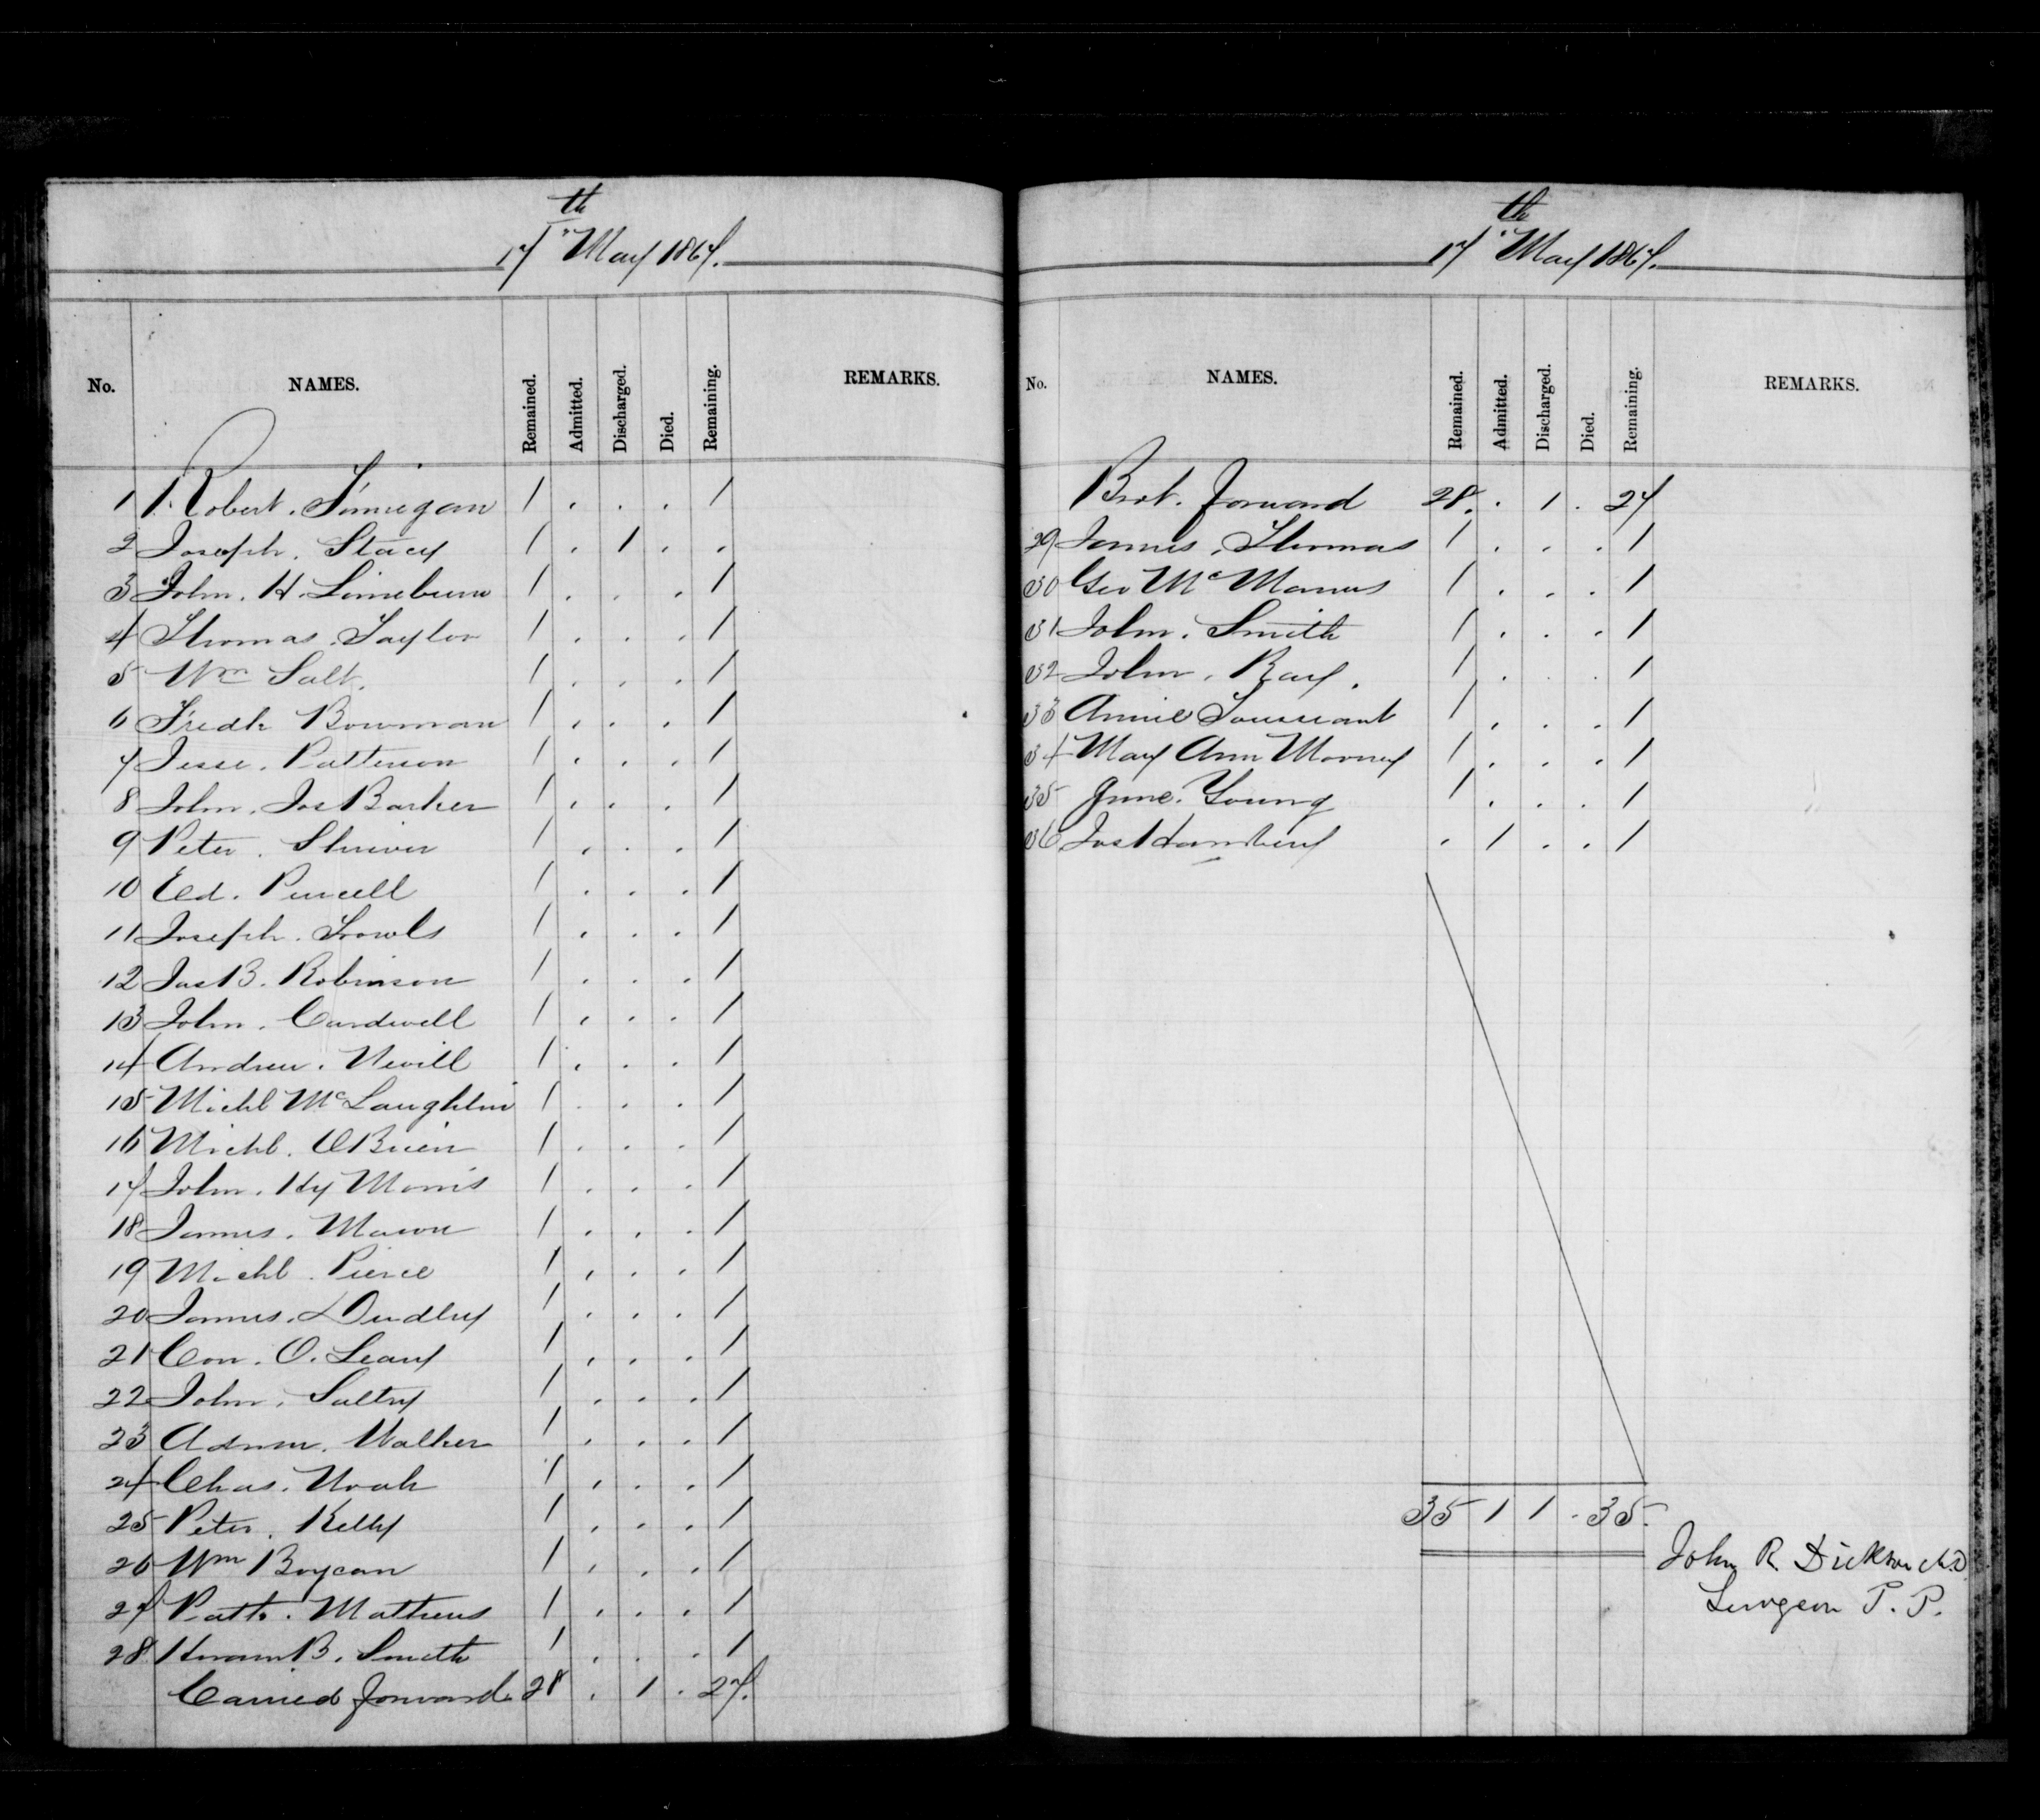 17th May 1867.
No. NAMES. Remained. Admitted. Discharged. Died. Remaining. REMARKS.
1 Robert. Finnegan 1 . . . 1
2 Joseph. Stacey 1 . 1 . .
3 John. H. Limeburn 1 . . . 1
4 Thomas. Taylor 1 . . . 1
5 Wm Salt. 1 . . . 1
6 Fredk Bowman 1 . . . 1
7 Jesse. Patterson 1 . . . 1
8 John. Jos Barker 1 . . . 1
9 Peter. Shriver 1 . . . 1
10 Ed. Purcell 1 . . . 1
11 Joseph. 1 . . . 1
12 Jas B. Robinson 1 . . . 1
13 John. Cardwell 1 . . . 1
14 Andrew. Nevill 1 . . . 1
15 Michl McLaughlin 1 . . . 1
16 Michl. OBrien 1 . . . 1
17 John. Hy Morris 1 . . . 1
18 James. Mason 1 . . . 1
19 Michl. Pierce 1 . . . 1
20 James. Dudley 1 . . . 1
21 Con. O. Leary 1 . . . 1
22 John. Saltry 1 . . . 1
23 Adam. Walker 1 . . . 1
24 Chas. Noah 1 . . . 1
25 Peter. Kelly 1 . . . 1
26 Wm Boycan 1 . . . 1
27 Patk. Mathews 1 . . . 1
28 Hiram B. Smith 1 . . . 1
Carried forward 28 . 1 . 27.
17th May 1867.
No. NAMES. Remained. Admitted. Discharged. Died. Remaining. REMARKS.
Brot. forward 28. . 1 . 27
29 James. Thomas 1 . . . 1
30 Geo McManus 1 . . . 1
31 John. Smith 1 . . . 1
32 John. Ray. 1 . . . 1
33 Annie Toussiant 1 . . . 1
34 Mary Ann Mooney 1 . . . 1
35 Jane. Young 1 . . . 1
36 Jas . 1 . . 1
35 1 1 . 35.
John R. Dickson M.D.
Surgeon P. P.